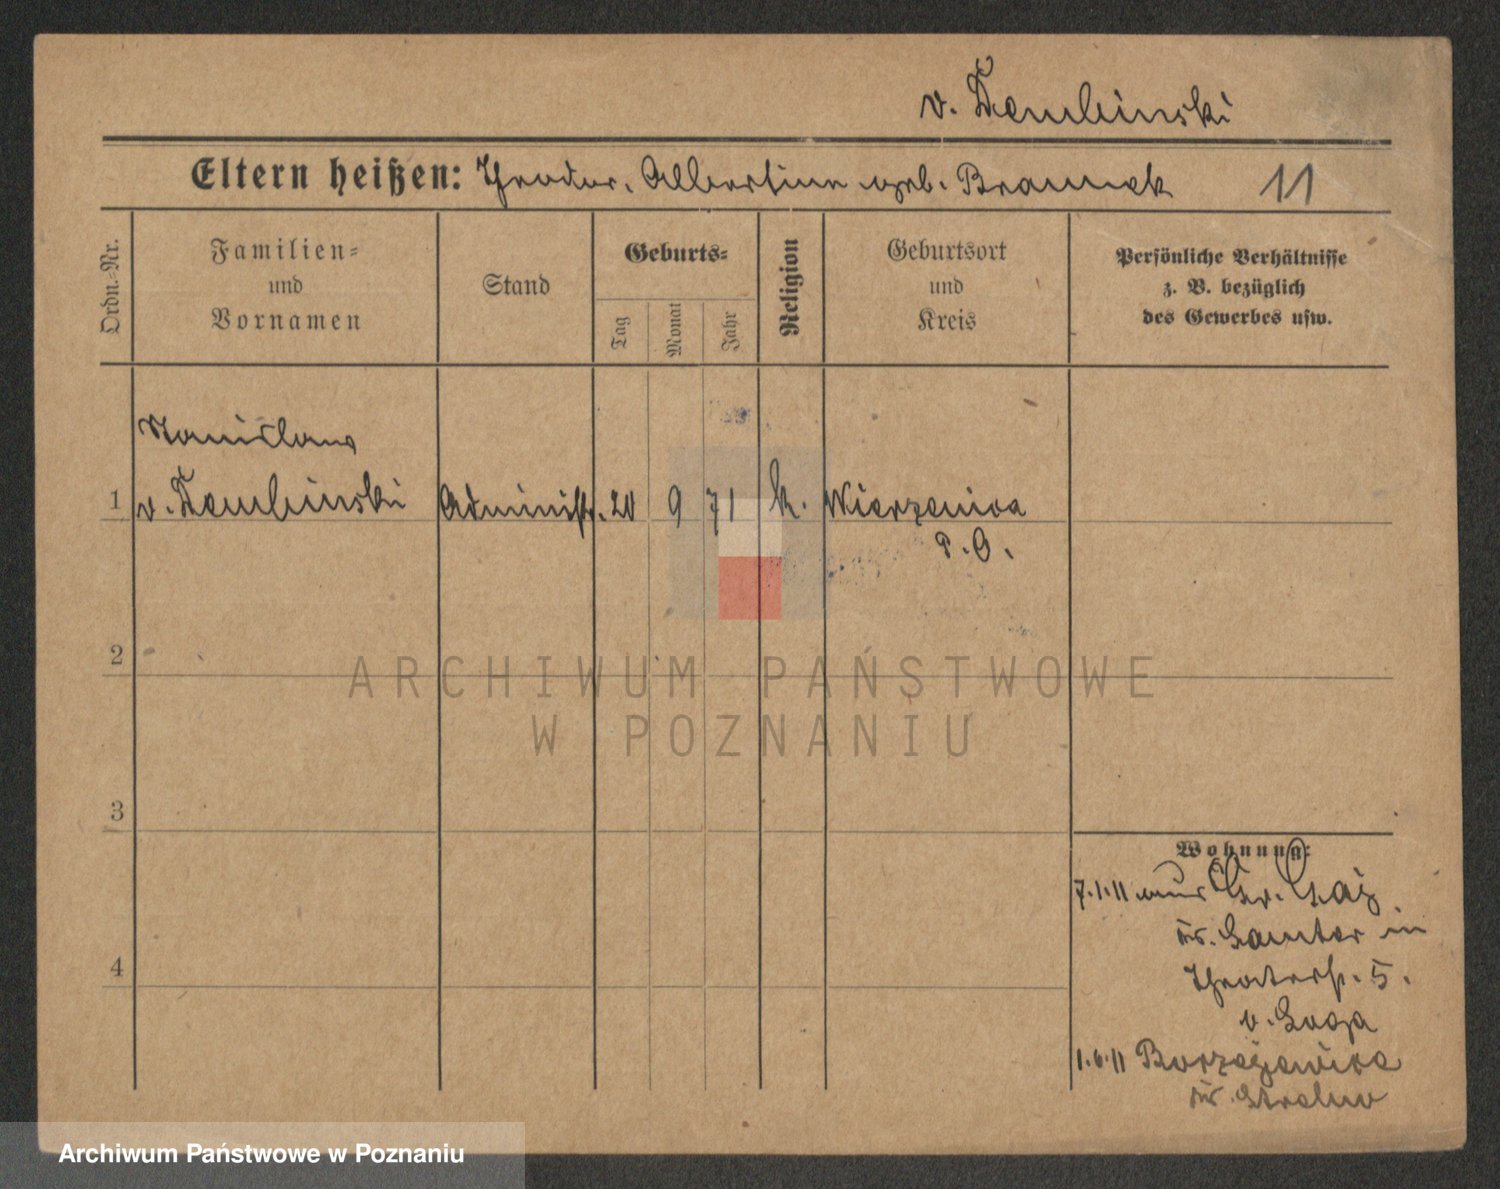 v. Dembinski
Eltern heißen: Theodor. Albertine geb. Brannek 11
Ordn.-Nr.
Familien-
und
Vornamen
Stand
Geburts-
Tag
Monat
Jahr
Religion
Geburtsort
und
Kreis
Persönliche Verhältnisse
z. B. bezüglich
des Gewerbes usw.
Stanislaus
1 v. Dembinski Administr. 20 9 71 k. Wierzenica
P. O.
2
3
4
Wohnung:
7.1.11 aus Gr. Gay
Kr. Samter in
Theaterstr. 5.
b.
1.6.11 Borzejewice
Kr. Strelno
ARCHIWUM PAŃSTWOWE
W POZNANIU
Archiwum Państwowe w Poznaniu